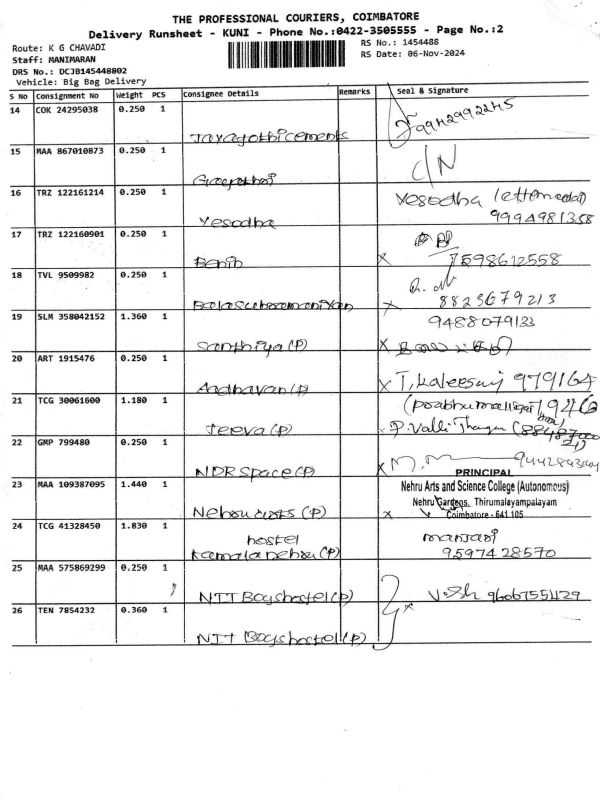 THE PROFESSIONAL COURIERS, COIMBATORE
Delivery Runsheet - KUNI - Phone No.:0422-3505555 - Page No.:2
Route: K G CHAVADI
RS No.: 1454488
Staff: MANIMARAN
RS Date: 06-Nov-2024
DRS No.: DCJB145448802
Vehicle: Big Bag Delivery
S No Consignment No Weight PCS Consignee Details Remarks Seal & Signature
14 COK 24295038 0.250 1
9942992245
15 MAA 867010873 0.250 1 C/N
Gayathri
16 TRZ 122161214 0.250 1 Yesodha
Yesodha 9994981358
17 TRZ 122160901 0.250 1
Benib x 7598612558
18 TVL 9509982 0.250 1
Balasubramaniyan x 8823679213
19 SLM 358042152 1.360 1 9488079133
Santhiya (P) x
20 ART 1915476 0.250 1
Aadhavan (P) x
21 TCG 30061600 1.180 1
Jeeva (P)
22 GMP 799480 0.250 1
NDR Space (P) x
PRINCIPAL
23 MAA 109387095 1.440 1 Nehru Arts and Science College (Autonomous)
Nehru Gardens, Thirumalayampalayam
Nehru arts (P) x Coimbatore - 641 105
24 TCG 41328450 1.830 1 hostel
Kamala nehru (P) 9597428570
25 MAA 575869299 0.250 1
NIT Boys hostel (P) 9606755429
26 TEN 7854232 0.360 1 x
NIT Boys hostel (P)